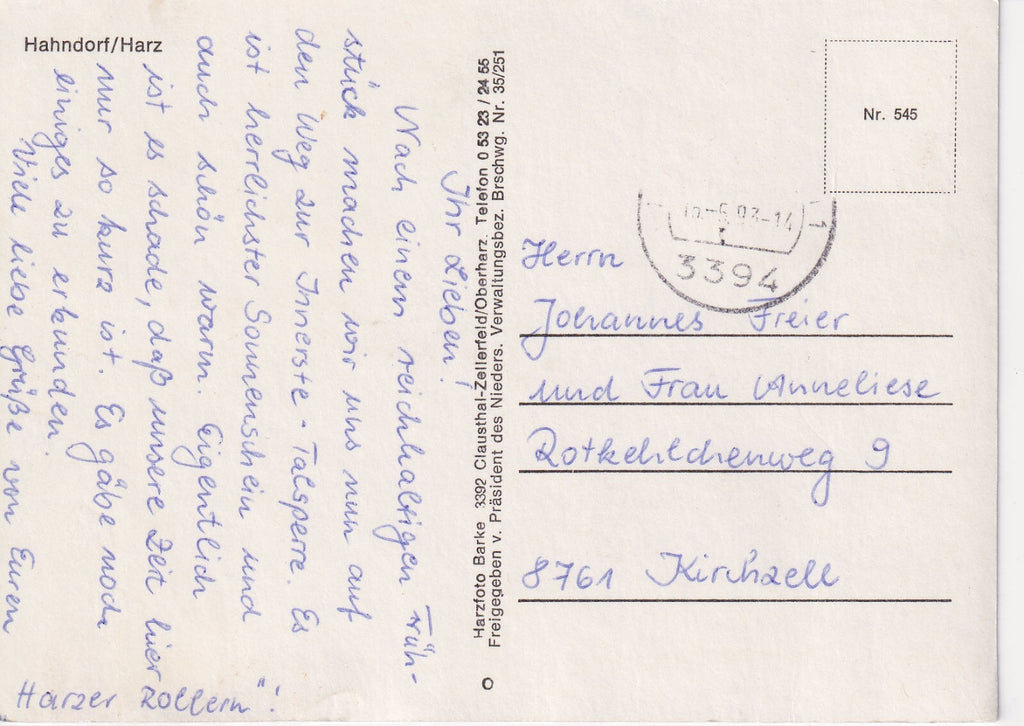 Hahndorf/Harz
Ihr Lieben!
Nach einem reichhaltigen Früh-
stück machen wir uns nun auf
den Weg zur Innerste-Talsperre. Es
ist herrlichster Sonnenschein und
auch schön warm. Eigentlich
ist es schade, daß unsere Zeit hier
nur so kurz ist. Es gäbe noch
einiges zu erkunden.
Viele liebe Grüße von Euren
Harzer Zollern"!
Harzfoto Barke 3392 Clausthal-Zellerfeld/Oberharz. Telefon 0 53 23 / 24 55
Freigegeben v. Präsident des Nieders. Verwaltungsbez. Brschwg. Nr. 35/251
Nr. 545
3394
Herrn
Johannes Freier
und Frau Anneliese
Rotkehlchenweg 9
8761 Kirchzell